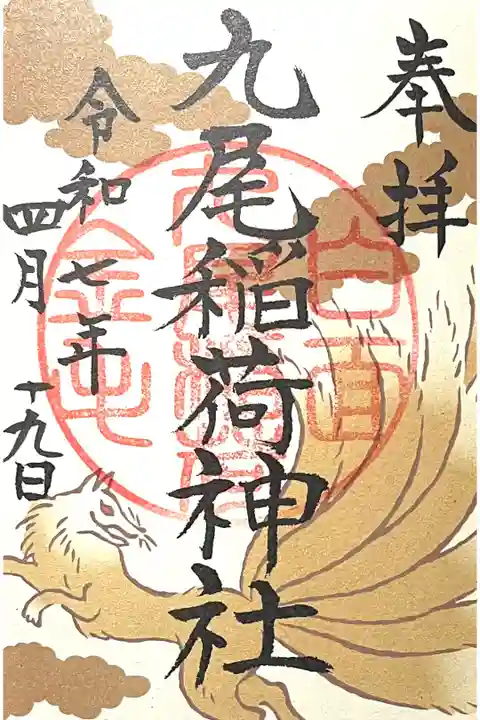 奉拝
九尾稲荷神社
令和七年
四月十九日